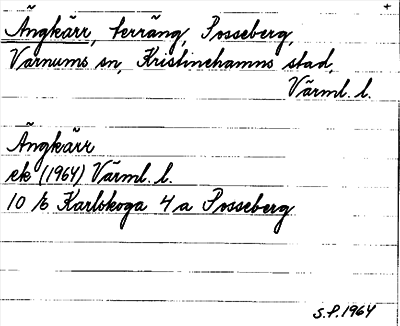 Ängkärr, terräng, Posseberg,
Varnums sn, Kristinehamns stad,
Värml. l.
Ängkärr
ek (1964) Värml. l.
10 E Karlskoga 4 a Posseberg
S.P. 1964